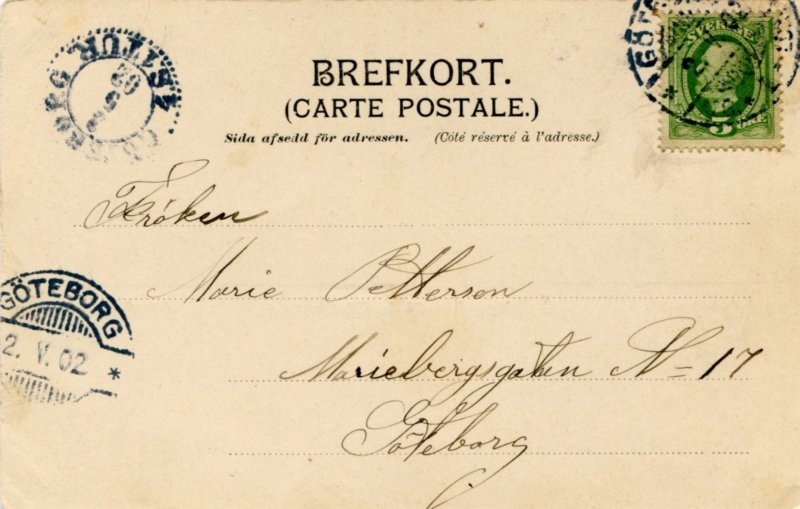 BREFKORT.
(CARTE POSTALE.)
Sida afsedd för adressen. (Côté réservé à l'adresse.)
SVERIGE
5 ÖRE
Fröken
Marie Petterson
Mariebergsgatan No 17
Göteborg
GÖTEBORG
2. V. 02 *